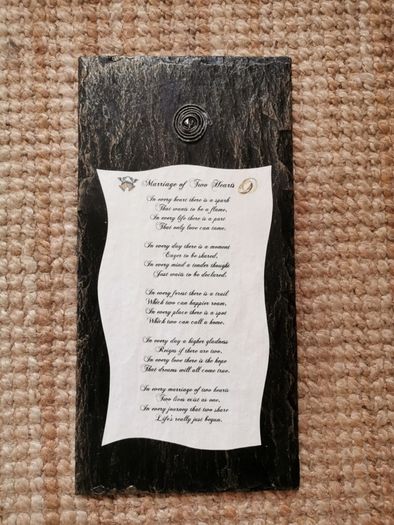 Marriage of Two Hearts
In every heart there is a spark
That wants to be a flame,
In every life there is a part
That only love can tame.
In every day there is a moment
Eager to be shared,
In every mind a tender thought
Just waits to be declared.
In every forest there is a trail
Which two can happier roam,
In every place there is a spot
Which two can call a home.
In every day a higher gladness
Reigns if there are two,
In every love there is the hope
That dreams will all come true.
In every marriage of two hearts
Two lives exist as one,
In every journey that two share
Life's really just begun.